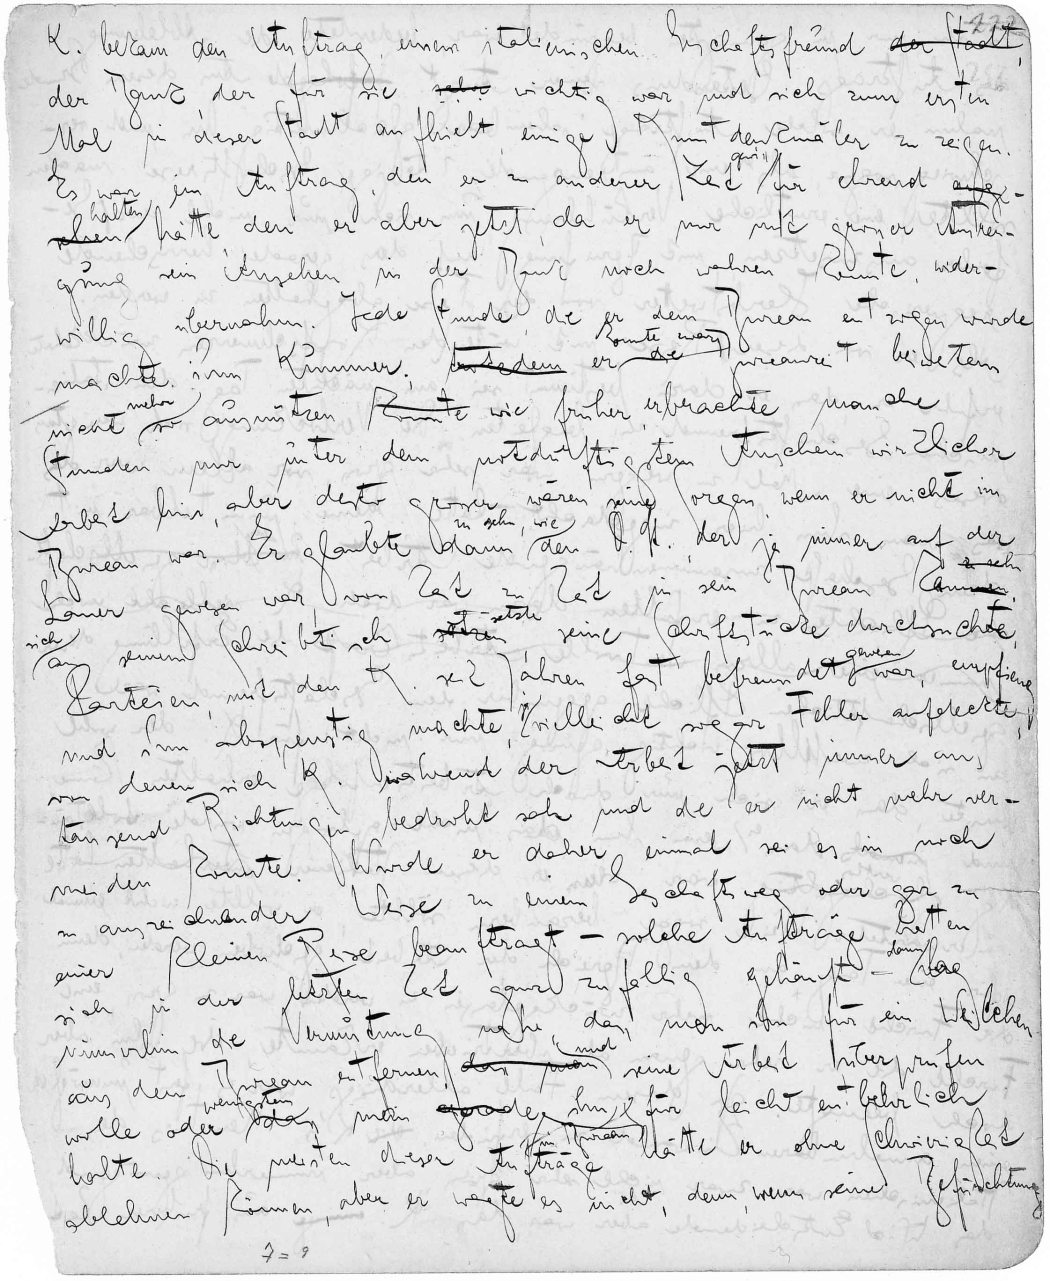 K. bekam den Auftrag einem italienischen Geschäftsfreund der Stadt,
der Bank, der für sie sehr wichtig war und sich zum ersten
Mal in dieser Stadt aufhielt, einige Kunstdenkmäler zu zeigen.
Es war ein Auftrag, den er zu anderer Zeit gewiß für ehrend ange-
halten hätte, den er aber jetzt, da er nur mit grosser Anstren-
gung sein Ansehen in der Bank noch wahren konnte, wider-
willig übernahm. Jede Stunde, die er dem Bureau entzogen wurde
machte ihm Kummer; trotzdem er konnte zwar die Bureauzeit beiweitem
nicht mehr so ausnützen konnte wie früher, er brachte manche
Stunden nur unter dem notdürftigsten Anschein wirklicher
Arbeit hin, aber desto grösser waren seine Sorgen, wenn er nicht im
Bureau war. Er glaubte dann zu sehn, wie den D. St. der ja immer auf der
Lauer gewesen war, von Zeit zu Zeit in sein Bureau kommen, zu sehn
sich an seinem Schreibtisch setzen setzte, seine Schriftstücke durchsuchte,
Parteien, mit den K. seit Jahren fast befreundet gewesen war, empfieng
und ihm abspenstig machte, ja vielleicht sogar Fehler aufdeckte,
von denen sich K. während der Arbeit jetzt immer aus
tausend Richtungen bedroht sah und die er nicht mehr ver-
meiden konnte. Wurde er daher einmal sei es in noch
so auszeichnender Weise zu einem Geschäftsweg oder gar zu
einer kleinen Reise beauftragt – solche Aufträge hatten
sich in der letzten Zeit ganz zufällig gehäuft – dann lag
immerhin die Vermutung nahe, daß man ihn für ein Weilchen
aus dem Bureau entfernen, dass man und seine Arbeit überprüfen
wolle oder wenigstens daß man gerade ihn im Bureau für leicht entbehrlich
halte. Die meisten dieser Aufträge hätte er ohne Schwierigkeit
ablehnen können, aber er wagte es nicht, denn, wenn seine Befürchtung
7 = 9